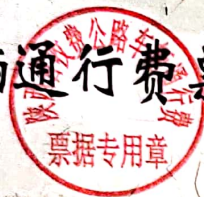 通行费票
陕西省收费公路车辆通行费
票据专用章